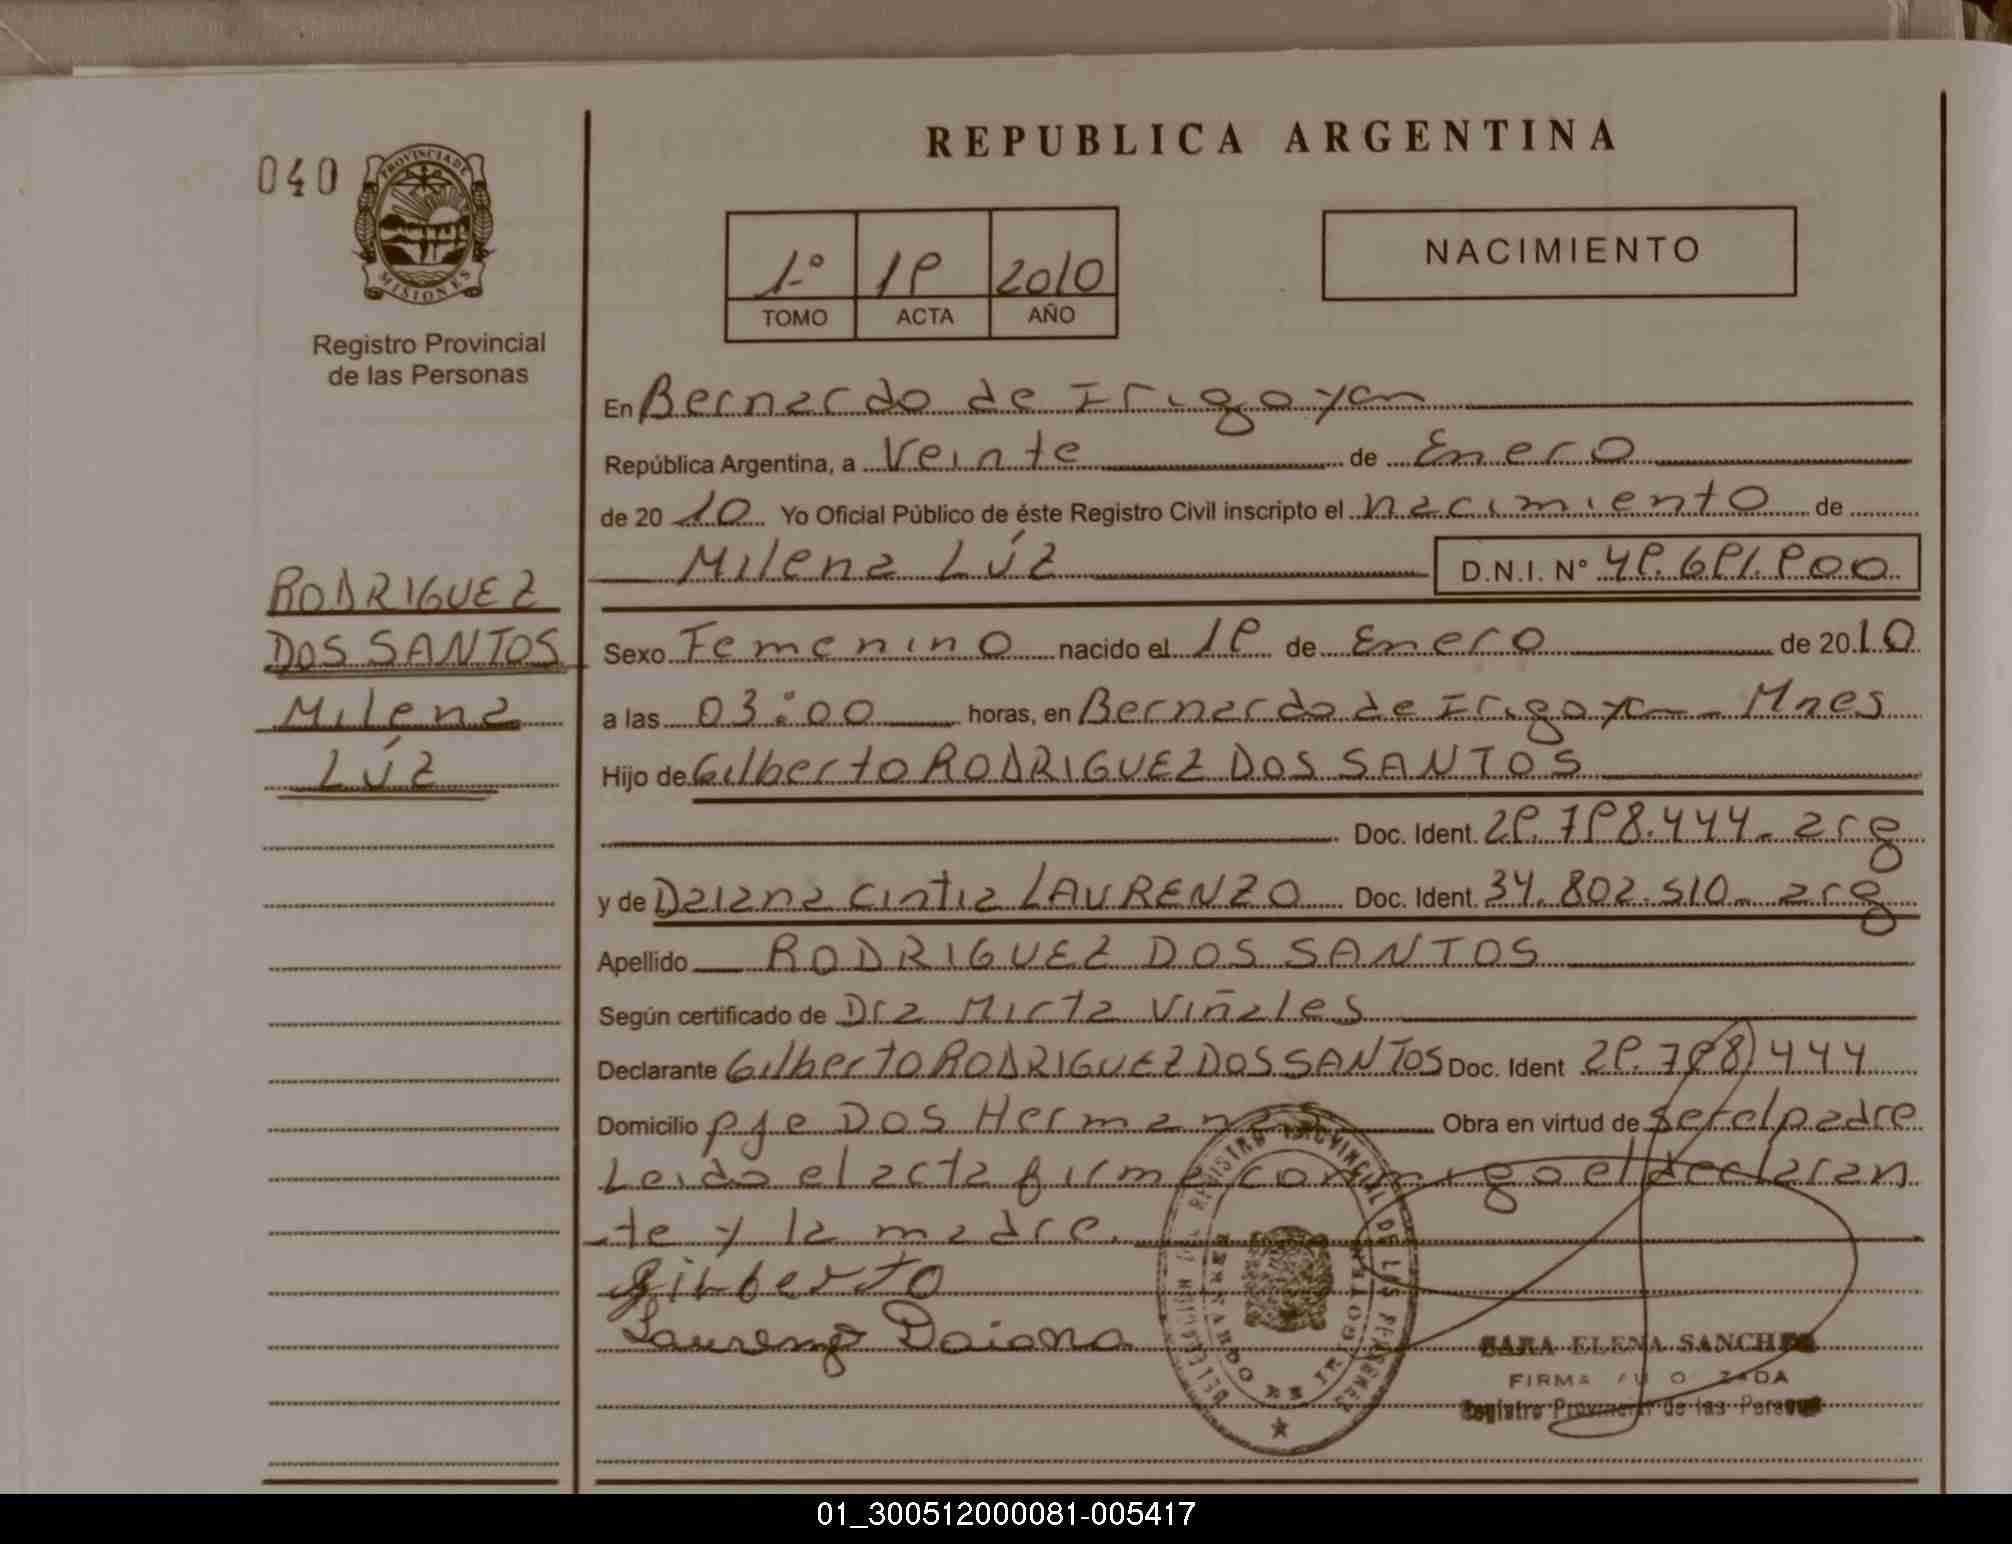 REPUBLICA ARGENTINA
040
PROVINCIA DE
MISIONES
Registro Provincial
de las Personas
1º 19 2010
TOMO ACTA AÑO
NACIMIENTO
En Bernardo de Irigoyen
República Argentina, a Veinte de Enero
de 2010 Yo Oficial Público de éste Registro Civil inscripto el nacimiento de
Milena Lúz D.N.I. Nº 49.691.900
RODRIGUEZ
DOS SANTOS
Milena
Lúz
Sexo Femenino nacido el 19 de Enero de 2010
a las 03:00 horas, en Bernardo de Irigoyen - Mnes
Hijo de Gilberto RODRIGUEZ DOS SANTOS
Doc. Ident. 29.798.444- arg
y de Daiana Cintia LAURENZO Doc. Ident. 34.802.510- arg
Apellido RODRIGUEZ DOS SANTOS
Según certificado de Dra Mirta Viñales
Declarante Gilberto RODRIGUEZ DOS SANTOS Doc. Ident 29.798.444
Domicilio pje Dos Hermanas Obra en virtud de ser el padre
Leido el acta firma conmigo el declaran
te y la madre.
Gilberto
Laurenzo Daiana
REGISTRO PROVINCIAL DE LAS PERSONAS
BERNARDO DE IRIGOYEN
SARA ELENA SANCHEZ
FIRMA AUTORIZADA
Registro Provincial de las Personas
01_300512000081-005417